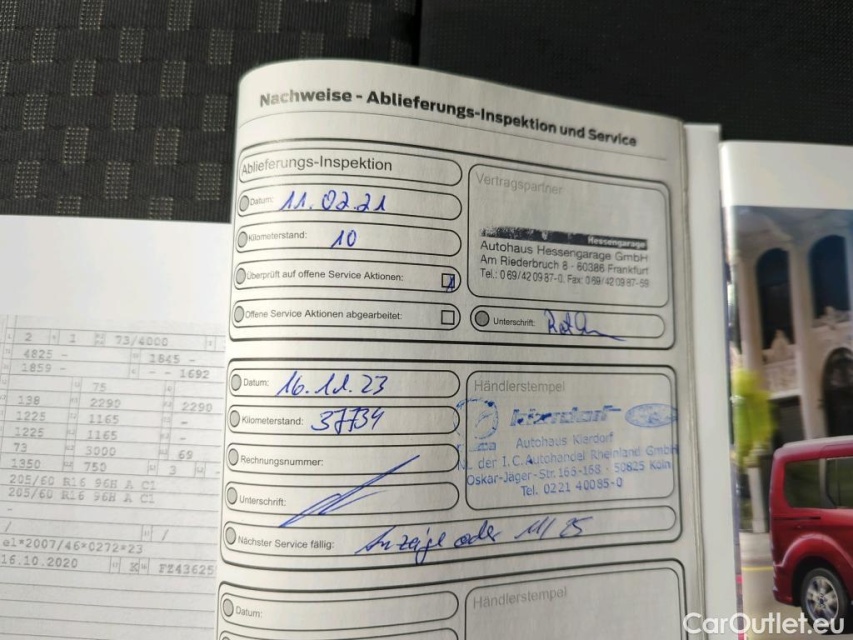 Nachweise - Ablieferungs-Inspektion und Service
Ablieferungs-Inspektion
Datum: 11.02.21
Kilometerstand: 10
Überprüft auf offene Service Aktionen:
Offene Service Aktionen abgearbeitet:
Vertragspartner
Hessengarage
Autohaus Hessengarage GmbH
Am Riederbruch 8 - 60386 Frankfurt
Tel.: 069/420987-0. Fax: 069/420987-59
Unterschrift:
Datum: 16.11.23
Kilometerstand: 37734
Rechnungsnummer:
Unterschrift:
Nächster Service fällig: Anzeige oder 11/25
Händlerstempel
Autohaus Kierdorf
NL der I.C. Autohandel Rheinland GmbH
Oskar-Jäger-Str. 166-168 - 50825 Köln
Tel. 0221 40085-0
Datum:
Händlerstempel
2 1 73/4000
4825 - 1845 -
1859 - - - 1692
75
138 2290 2290
1225 1165 -
1225 1165 -
73 3000 69
1350 750 3 -
205/60 R16 96H A C1
205/60 R16 96H A C1
/ /
e1*2007/46*0272*23
16.10.2020 K FZ43625
CarOutlet.eu